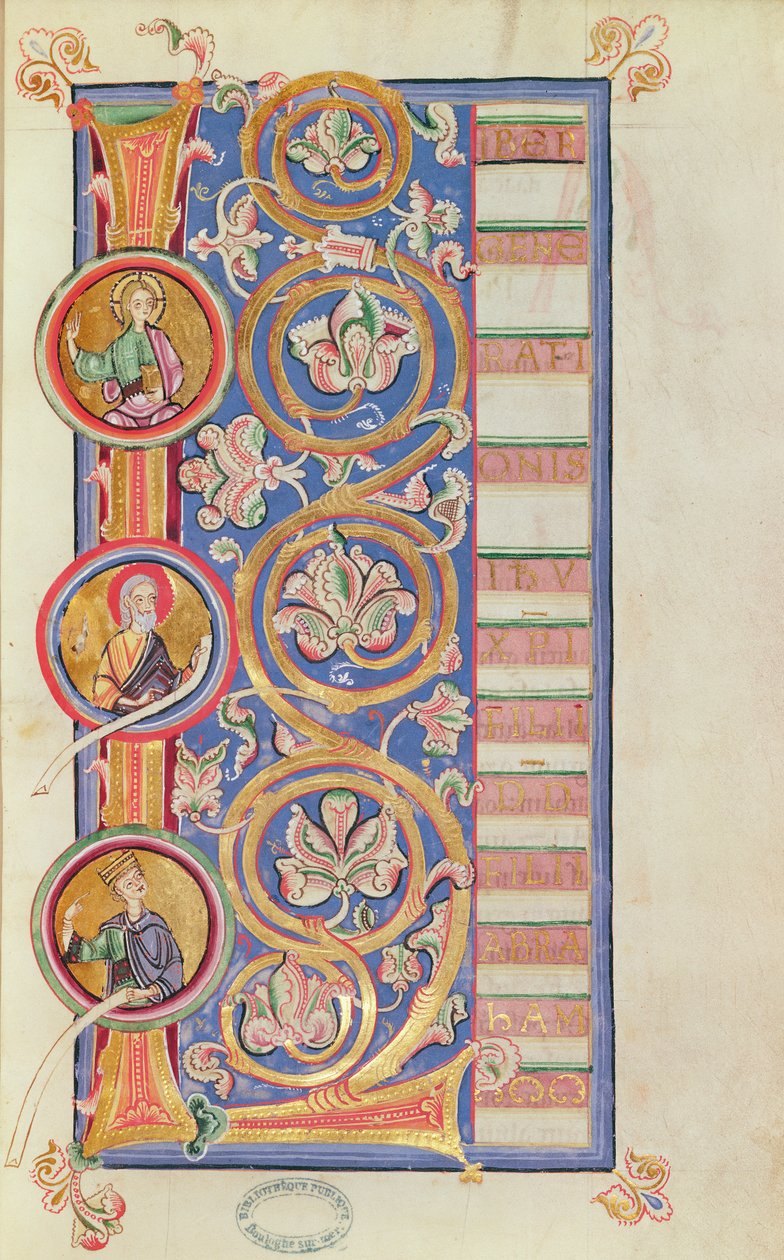 L
IBER
GENE
RATI
ONIS
IħV
XPI
FILII
DD
FILII
ABRA
hAM
BIBLIOTHÈQUE PUBLIQUE
Boulogne sur-mer